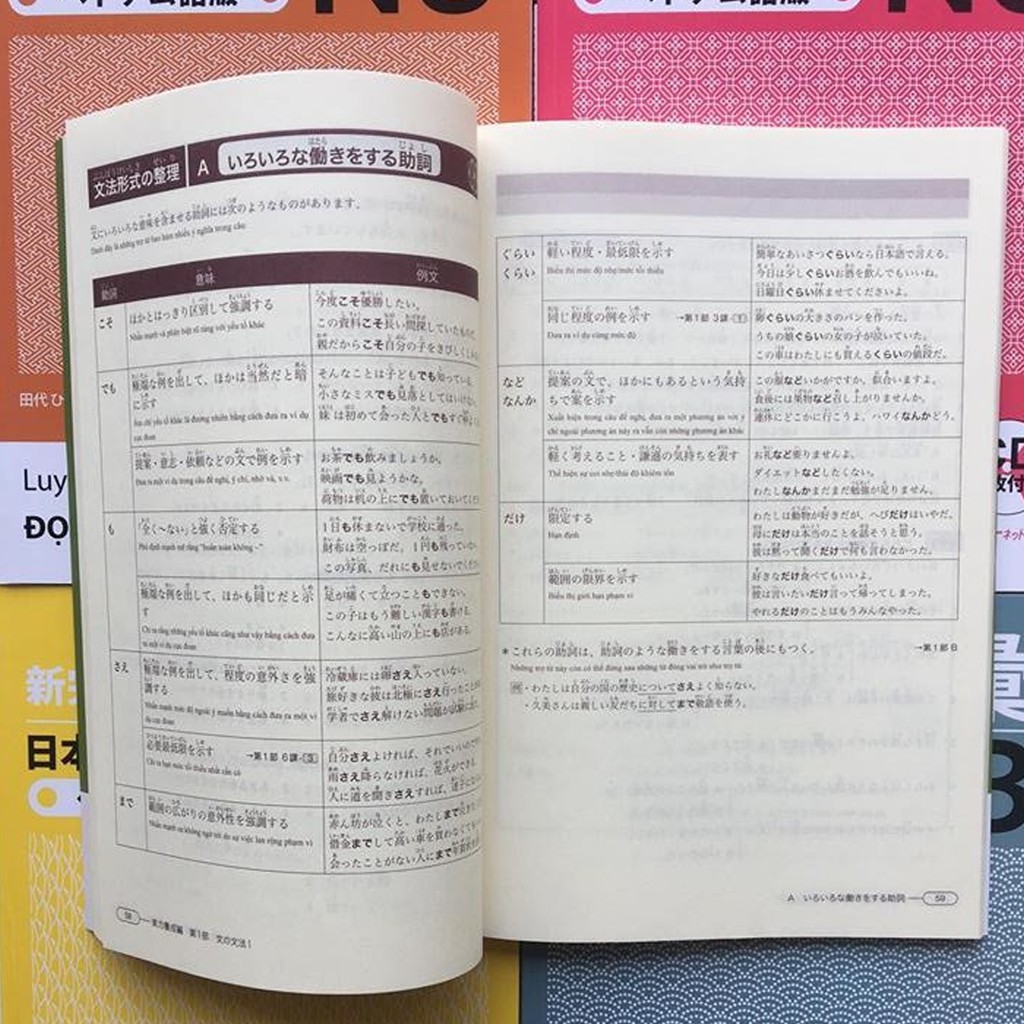 文法形式の整理 A いろいろな働きをする助詞
文にいろいろな意味を含ませる助詞には次のようなものがあります。
Dưới đây là những trợ từ bao hàm nhiều ý nghĩa trong câu
助詞 意味 例文
こそ ほかとはっきり区別して強調する
Nhấn mạnh và phân biệt rõ ràng với yếu tố khác
今度こそ優勝したい。
この資料こそ長い間探していたもので
親だからこそ自分の子をきびしく
でも 極端な例を出して、ほかは当然だと暗
に示す
そんなことは子どもでも知っている。
小さなミスでも見落としてはいけない。
妹は初めて会った人とでもすぐ
提案・意志・依頼などの文で例を示す
Đưa ra một ví dụ trong câu đề nghị, ý chí, nhờ vả, v.v.
お茶でも飲みましょうか。
映画でも見ようかな。
荷物は机の上にでも置いておいてく
も 「全く~ない」と強く否定する
Phủ định mạnh mẽ rằng "hoàn toàn không ~"
1日も休まないで学校に通った。
財布は空っぽだ。1円も残ってい
この写真、だれにも見せないでくだ
極端な例を出して、ほかも同じだと示
す
足が痛くて立つこともできない。
この子はもう難しい漢字も書ける。
こんなに高い山の上にも店がある。
さえ 極端な例を出して、程度の意外さを強
調する
冷蔵庫には卵さえ入っていない。
旅好きな彼は北極にさえ行ったことが
学者でさえ解けない問題が試験に
必要最低限を示す →第1部 6課-3
Chỉ ra hạn mức tối thiểu nhất cần có
自分さえよければ、それでいいので
雨さえ降らなければ、花火ができる。
人に道を聞きさえすれば、迷子に
まで 範囲の広がりの意外性を強調する
Nhấn mạnh sự không ngờ tới do sự việc lan rộng phạm vi
赤ん坊が泣くと、わたしまで泣き
借金までして高い車を買わなくても
会ったことがない人にまで年賀状を
58 実力養成編 第1部 文の文法1
ぐらい
くらい
軽い程度・最低限を示す
Biểu thị mức độ nhẹ/mức tối thiểu
簡単なあいさつぐらいなら日本語で言える。
今日は少しぐらいお酒を飲んでもいいね。
日曜日ぐらい休ませてくださいよ。
同じ程度の例を示す →第1部 3課-1
Đưa ra ví dụ cùng mức độ
卵ぐらいの大きさのパンを作った。
うちの娘ぐらいの女の子が泣いていた。
この車はわたしにも買えるくらいの値段だ。
など
なんか
提案の文で、ほかにもあるという気持
ちで案を示す
Xuất hiện trong câu đề nghị, đưa ra một phương án với ý
chỉ ngoài phương án này ra vẫn còn những phương án khác
この服などいかがですか。お似合いますよ。
食後には果物など召し上がりませんか。
連休にどこかに行こうよ。ハワイなんかどう。
軽く考えること・謙遜の気持ちを表す
Thể hiện sự coi nhẹ/thái độ khiêm tốn
お礼など要りませんよ。
ダイエットなどしたくない。
わたしなんかまだまだ勉強が足りません。
だけ 限定する
Hạn định
わたしは動物が好きだが、へびだけはいやだ。
母にだけは本当のことを話そうと思う。
彼は黙って聞くだけで何も言わなかった。
範囲の限界を示す
Biểu thị giới hạn phạm vi
好きなだけ食べてもいいよ。
彼は言いたいだけ言って帰ってしまった。
やれるだけのことはもうみんなやった。
*これらの助詞は、助詞のような働きをする言葉の後にもつく。 →第1部B
Những trợ từ này còn có thể đứng sau những từ đóng vai trò như trợ từ.
例 ・わたしは自分の国の歴史についてさえよく知らない。
・久美さんは親しい友だちに対してまで敬語を使う。
A いろいろな働きをする助詞 59
田代 ひ
Luy
ĐỌ
日本